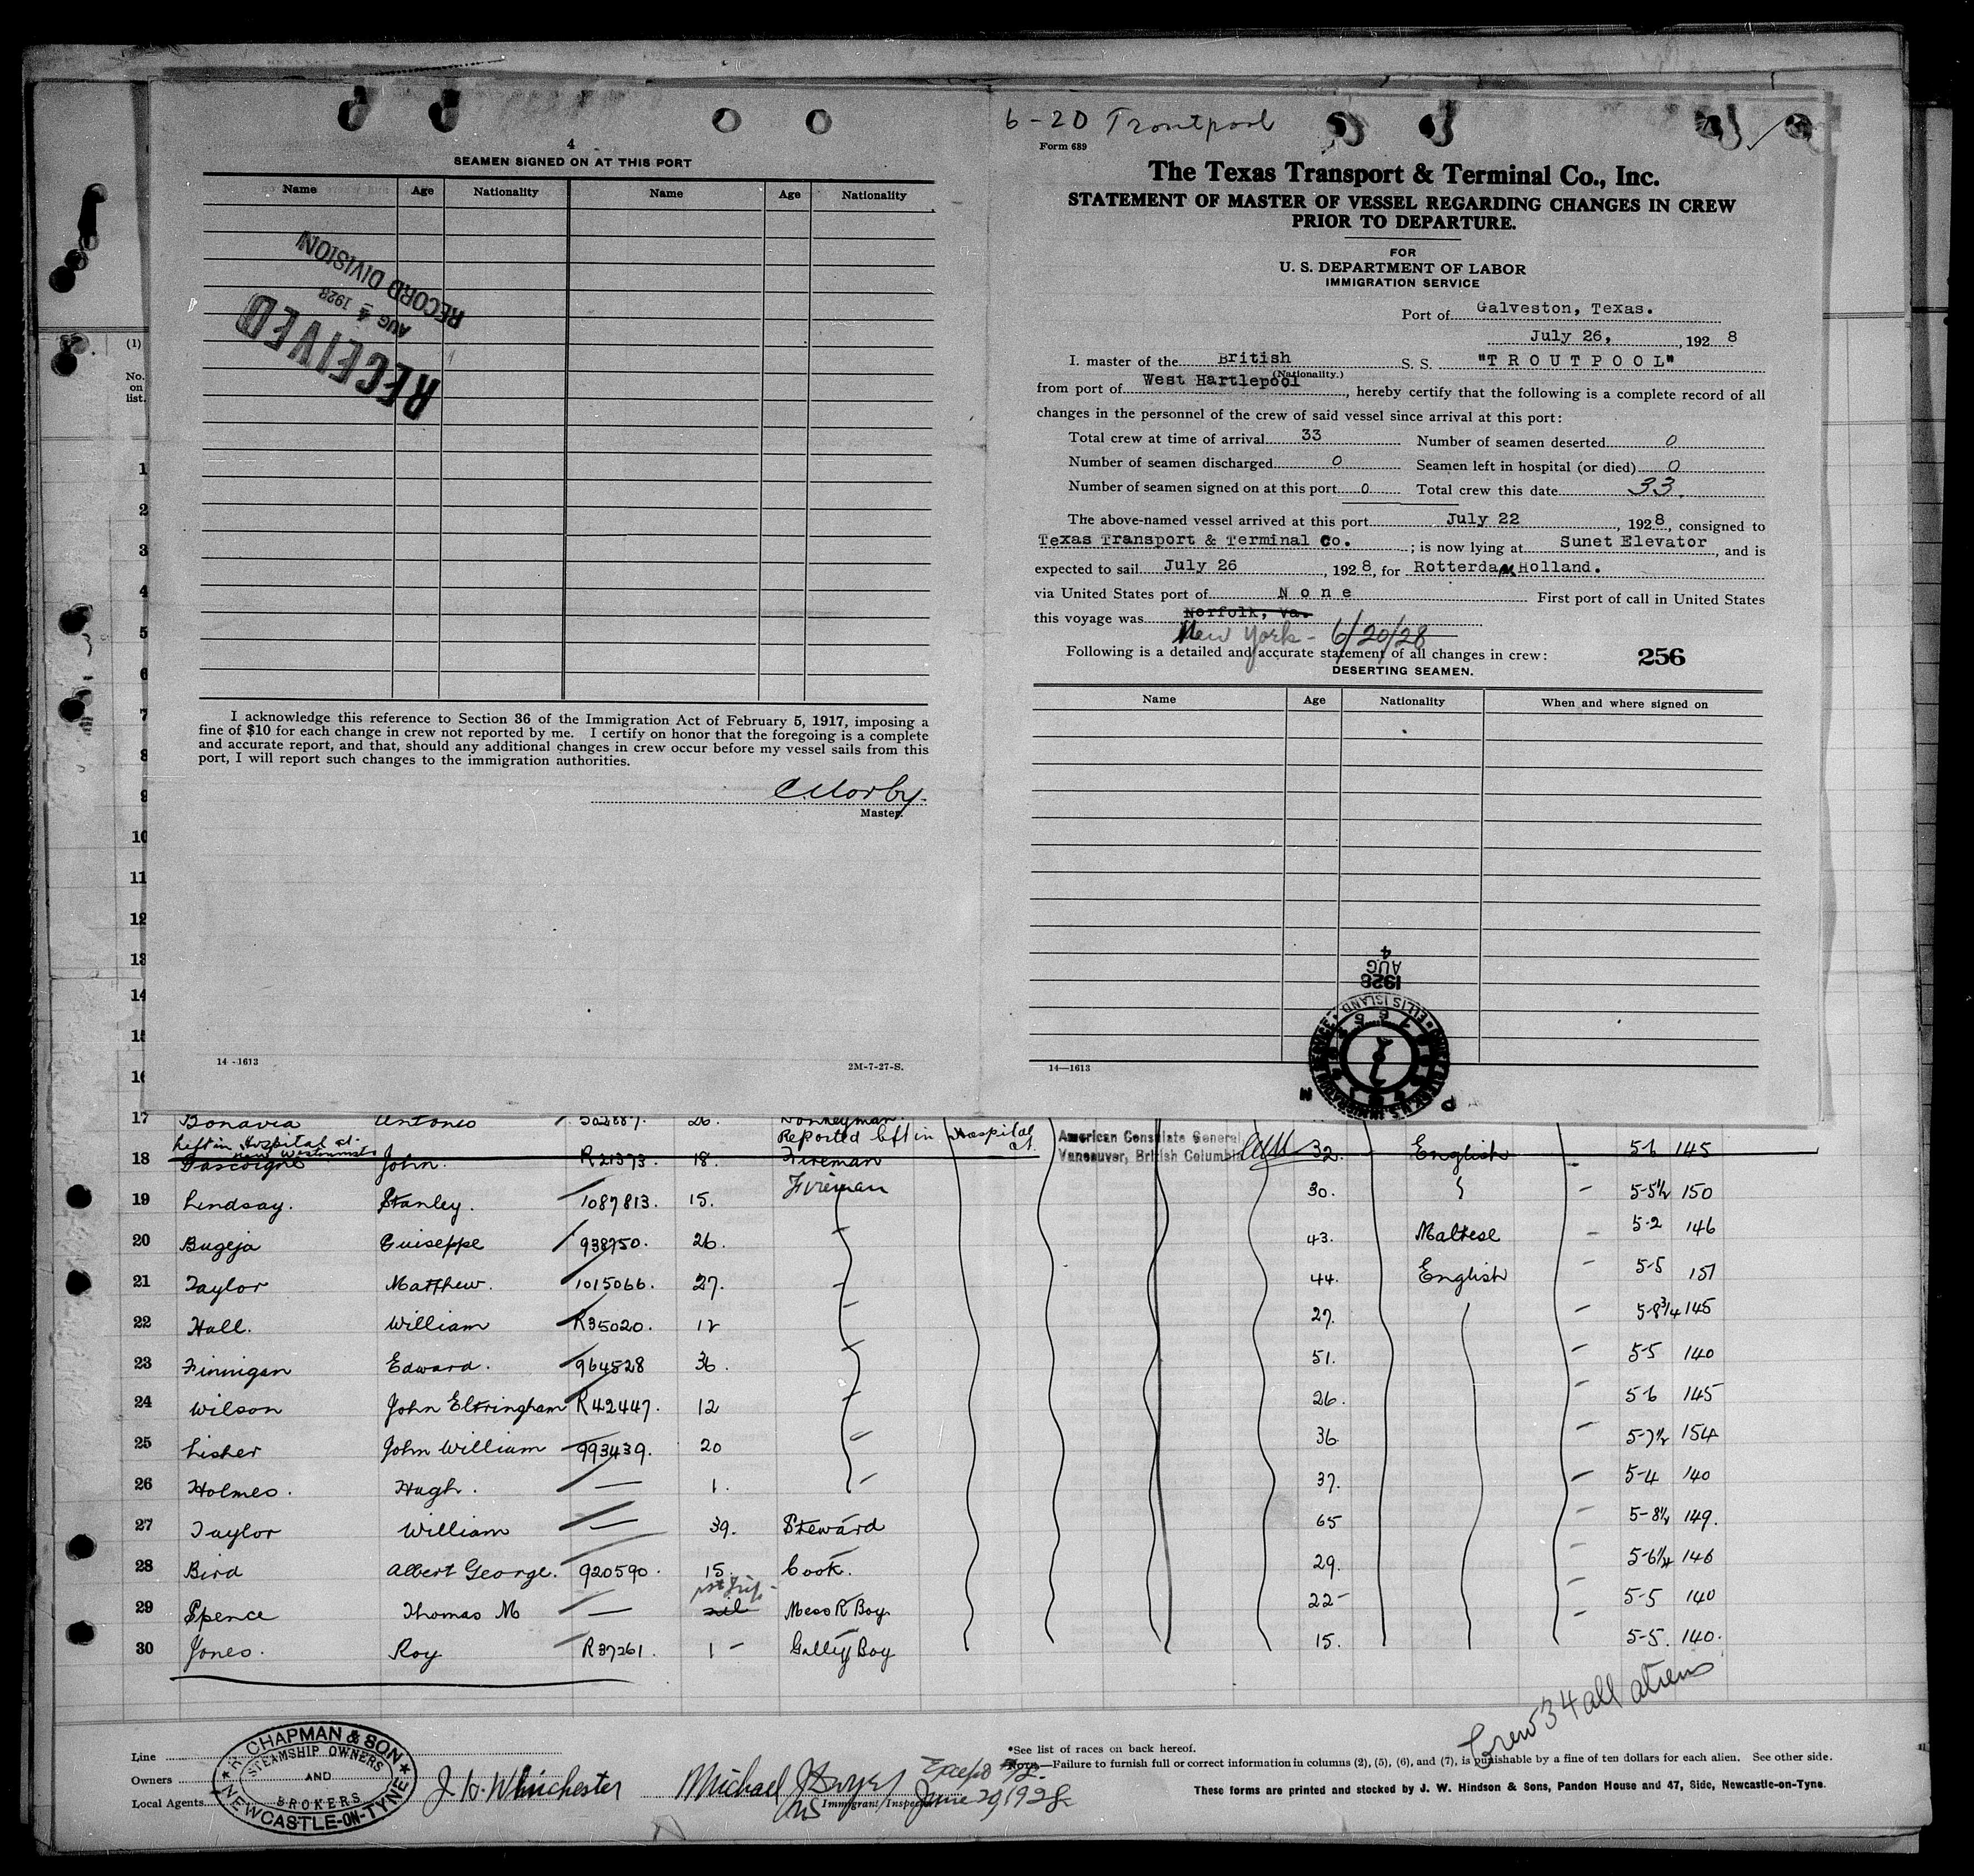 4
SEAMEN SIGNED ON AT THIS PORT
Name Age Nationality Name Age Nationality
RECEIVED
AUG 4 1928
RECORD DIVISION
I acknowledge this reference to Section 36 of the Immigration Act of February 5, 1917, imposing a
fine of $10 for each change in crew not reported by me. I certify on honor that the foregoing is a complete
and accurate report, and that, should any additional changes in crew occur before my vessel sails from this
port, I will report such changes to the immigration authorities.
Master.
14-1613 2M-7-27-S.
6-20 Troutpool
Form 689
The Texas Transport & Terminal Co., Inc.
STATEMENT OF MASTER OF VESSEL REGARDING CHANGES IN CREW
PRIOR TO DEPARTURE.
FOR
U. S. DEPARTMENT OF LABOR
IMMIGRATION SERVICE
Port of Galveston, Texas.
July 26, , 192 8
I. master of the British S. S. "TROUTPOOL"
(Nationality.)
from port of West Hartlepool , hereby certify that the following is a complete record of all
changes in the personnel of the crew of said vessel since arrival at this port:
Total crew at time of arrival 33 Number of seamen deserted 0
Number of seamen discharged 0 Seamen left in hospital (or died) 0
Number of seamen signed on at this port 0 Total crew this date 33.
The above-named vessel arrived at this port July 22 , 1928, consigned to
Texas Transport & Terminal Co. ; is now lying at Sunet Elevator , and is
expected to sail July 26 , 192 8, for Rotterdam Holland.
via United States port of None First port of call in United States
this voyage was Norfolk, Va.
New York - 6/20/28
Following is a detailed and accurate statement of all changes in crew: 256
DESERTING SEAMEN.
Name Age Nationality When and where signed on
1928
AUG
4
ELLIS ISLAND
14—1613
(1)
No.
on
list.
1
2
3
4
5
6
7
8
9
10
11
12
13
14
15
16
17 Bonavia Antonio 502887. 26. Donkeyman.
Left in Hospital at New Westminster Reported left in Hospital at American Consulate General
Vancouver, British Columbia
18 Gascoigne John. R21373. 18. Fireman 32. English 5-6 145
19 Lindsay. Stanley. 1087813. 15. Fireman 30. 5-5½ 150
20 Bugeja Guiseppe 938750. 26. 43. Maltese 5-2 146
21 Taylor Matthew. 1015066. 27. 44. English 5-5 151
22 Hall. William R35020. 12 27. 5-8¾ 145
23 Finnigan Edward. 964528 36. 51. 5-5 140
24 Wilson John Eltringham R42447. 12 26. 5-6 145
25 Lisher John William 993439. 20 36 5-7½ 154
26 Holmes. Hugh. — 1. 37. 5-4 140
27 Taylor William — 39. Steward 65 5-8¼ 149.
28 Bird Albert George. 920590. 15. Cook. 29. 5-6¼ 146
29 Spence Thomas M — nil 1st Trip Mess R Boy 22 5-5 140
30 Jones. Roy R37261. 1 Galley Boy 15. 5-5. 140.
Crew 34 all aliens
Line
Owners
Local Agents
R. CHAPMAN & SON
STEAMSHIP OWNERS
AND
BROKERS
NEWCASTLE-ON-TYNE
J. H. Winchester
Michael J Dwyer
Immigrant Inspector
June 20 1928
*See list of races on back hereof.
Note.—Failure to furnish full or correct information in columns (2), (5), (6), and (7), is punishable by a fine of ten dollars for each alien. See other side.
These forms are printed and stocked by J. W. Hindson & Sons, Pandon House and 47, Side, Newcastle-on-Tyne.